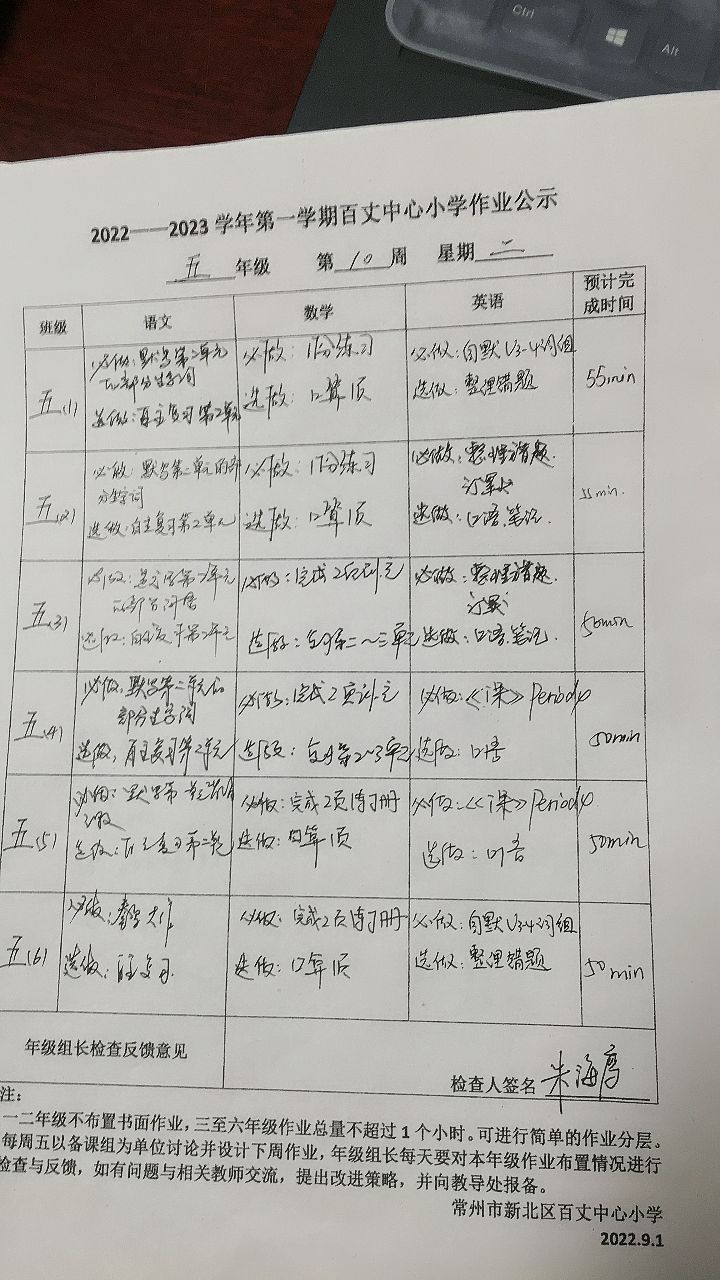 Ctrl
Alt
2022——2023 学年第一学期百丈中心小学作业公示
五 年级 第 10 周 星期 二
班级 语文 数学 英语 预计完成时间
五(1)
必做：默写第二单元
的部分生字词
选做：自主复习第2单元
必做：1份练习
选做：口算1页
必做：自默U3-4词组
选做：整理错题
55min
五(2)
必做：默写第二单元的部
分生字词
选做：自主复习第2单元
必做：1份练习
选做：口算1页
必做：整理错题
选做：口语.笔记.
55min.
五(3)
必做：第二单元
选做：第2单元
必做：完成2页补充
选做：复习第二~三单元
必做：整理错题.
选做：口语.笔记.
50min
五(4)
必做：默写第二单元的
部分生字词
选做：自主复习第2单元
必做：完成2页补充
选做：复习第2~3单元
必做：《课》Period4
选做：口语
50min
五(5)
必做：默写第二单元
选做：自主复习第二单元
必做：完成2页练习册
选做：口算1页
必做：《课》Period4
选做：口语
50min
五(6)
必做：大作
选做：自主复习
必做：完成2页练习册
选做：口算1页
必做：自默U3-4词组
选做：整理错题
50min
年级组长检查反馈意见
检查人签名 朱海
注：
一二年级不布置书面作业，三至六年级作业总量不超过 1 个小时。可进行简单的作业分层。
每周五以备课组为单位讨论并设计下周作业，年级组长每天要对本年级作业布置情况进行
检查与反馈，如有问题与相关教师交流，提出改进策略，并向教导处报备。
常州市新北区百丈中心小学
2022.9.1